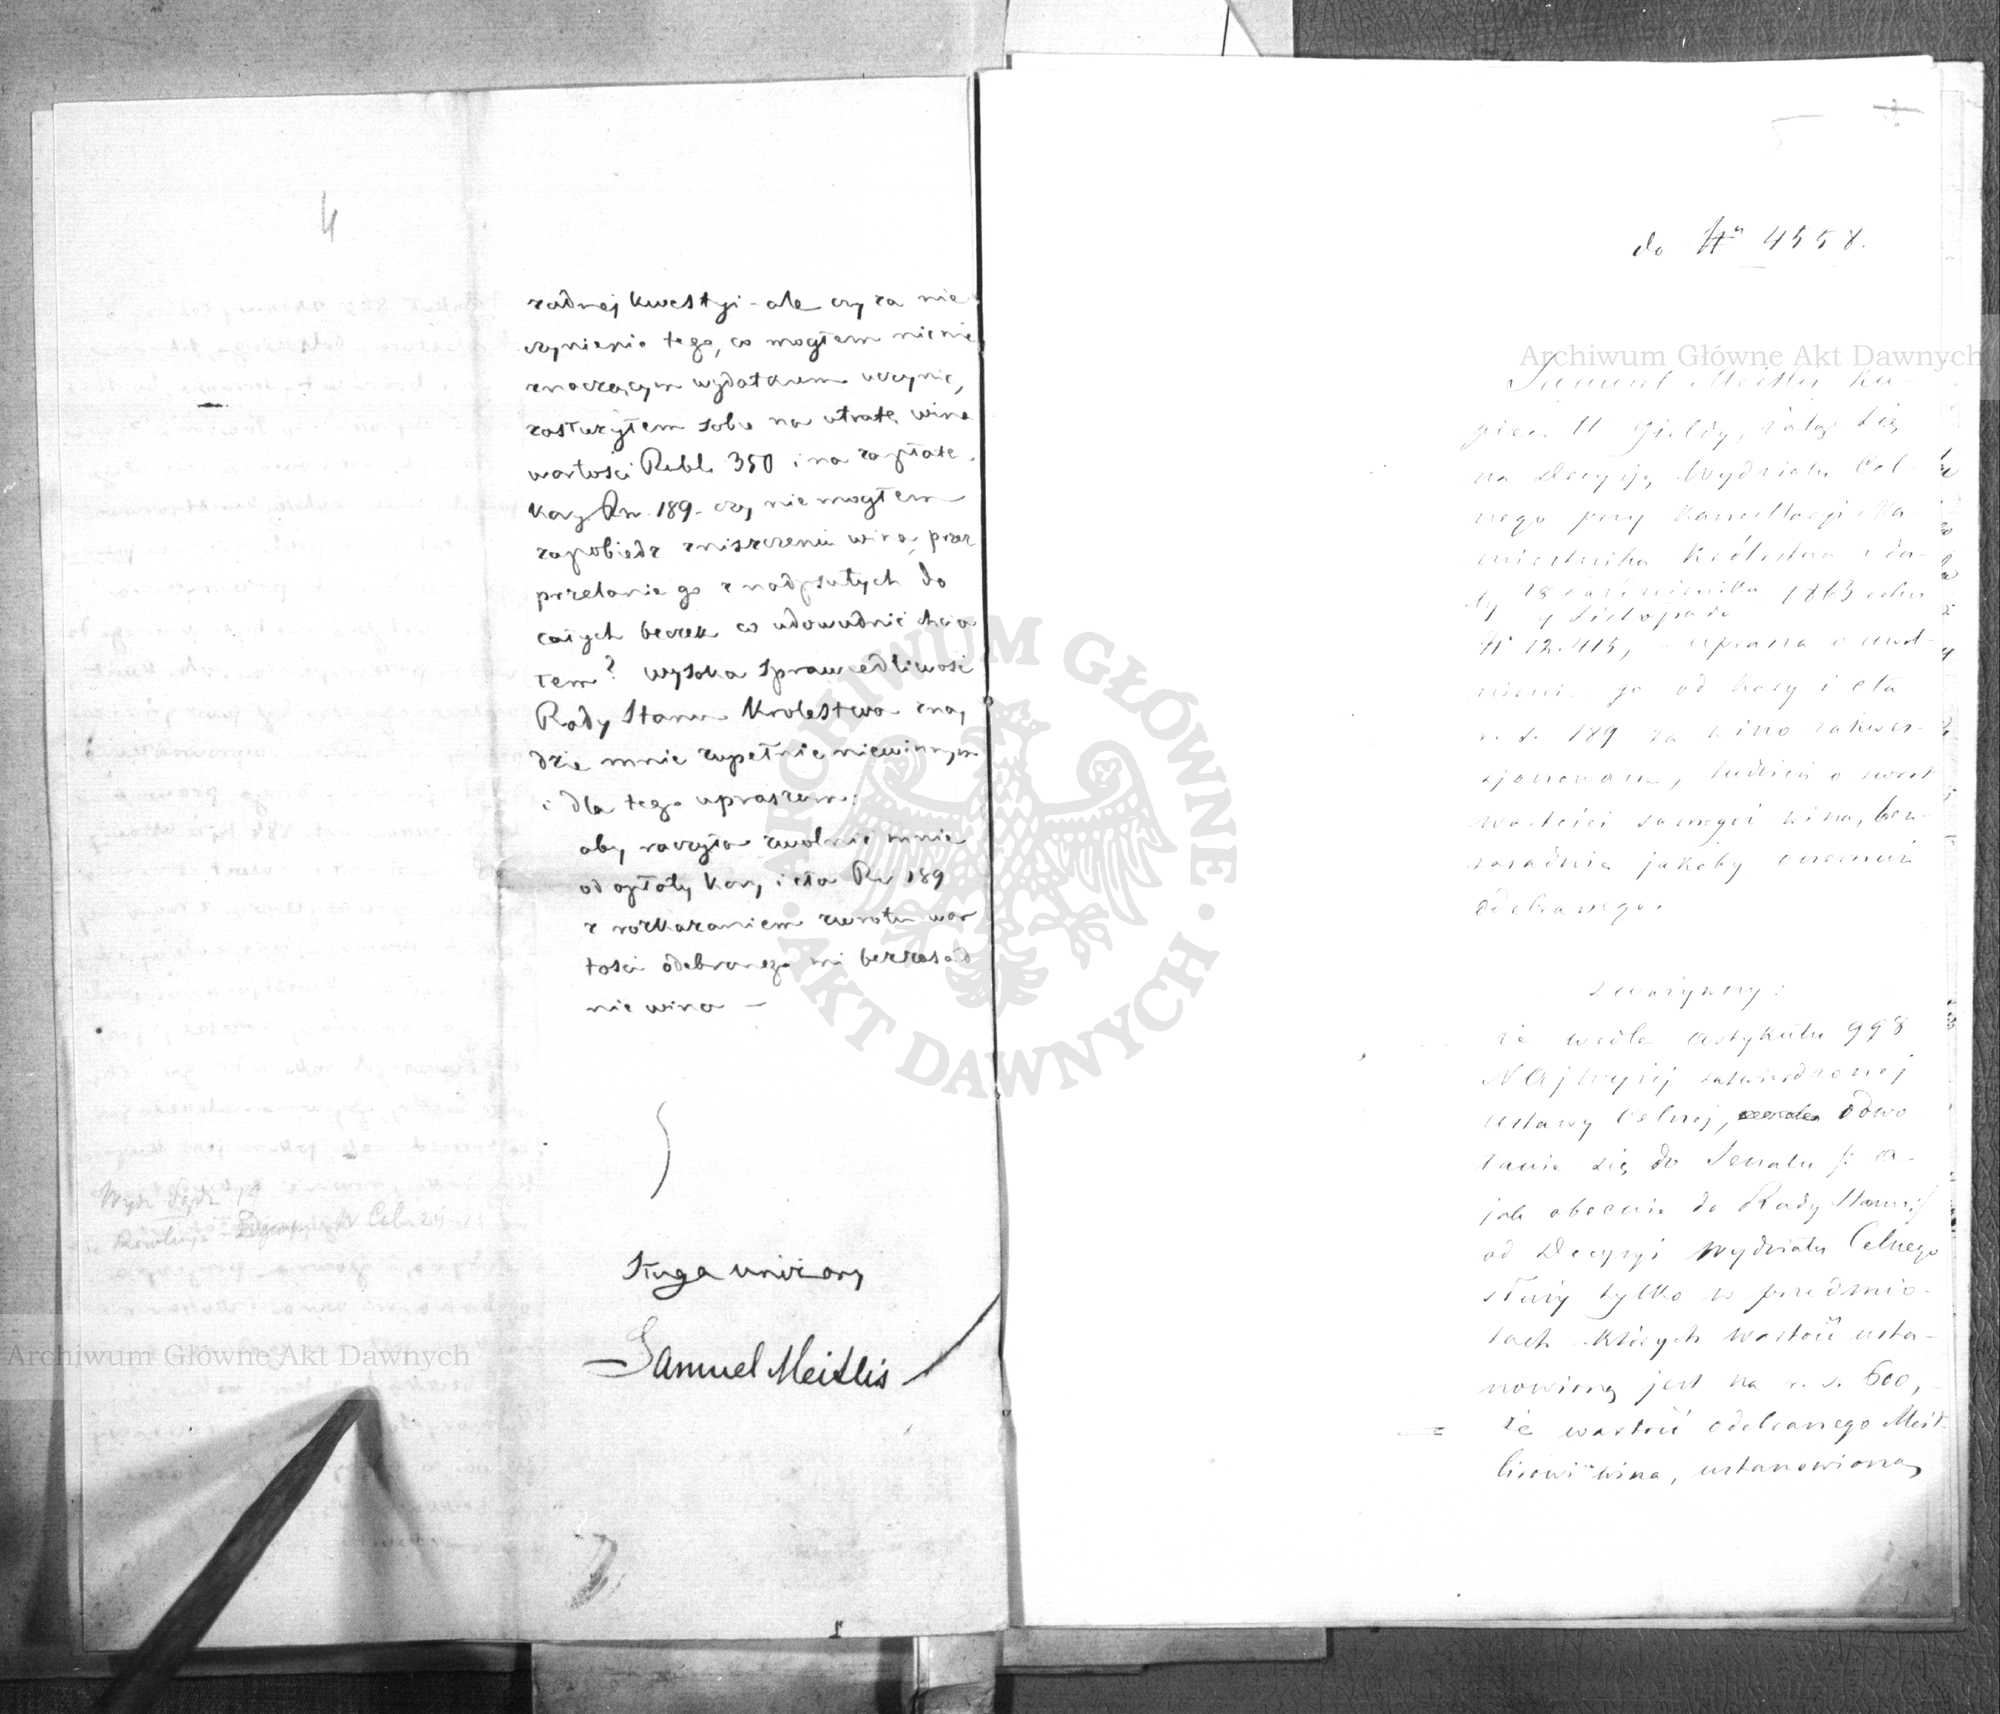 4
żadnej kwestyi - ale czy za nie
czynienie tego, co mogłem nic nie
znaczącym wydatkiem uczynić,
zasłużyłem sobie na utratę wina
wartości Rubl. 350 i na zapłatę
kary Rs. 189 - czy nie mogłem
zapobiedz zniszczeniu wina, przez
przelanie go z nadpsutych do
całych beczek co udowodnić chcia
łem? Wysoka sprawiedliwość
Rady Stanu Królestwa znaj
dzie mnie zupełnie niewinnym
i dla tego upraszam:
aby raczyła zwolnić mnie
od opłaty kary i cła Rs 189
z rozkazaniem zwrotu war
tości odebranego mi bezzasad
nie wina —
Sługa uniżony
Samuel Meitlis
5
do Nn 4558.
Samuel Meitlis Ku-
piec II Gieldy, żaląc się
na Decyzję Wydziału Cel-
nego przy Kancellaryi Na-
miestnika Królestwa z da-
ty 18 Października
Listopada 1863 roku
Nr 12.415, uprasza o uwol-
nienie go od kary i cła
r. s. 189 za wino zakwes-
tjonowane, tudzież o zwrot
wartości samegoż wina, bez-
zasadnie jakoby onemuż
odebranego.
Zważywszy:
że wedle artykułu 998
Najwyżej zatwierdzonej
Ustawy Celnej, odwo
łanie się do Senatu /: a
jak obecnie do Rady Stanu :/
od Decyzyi Wydziału Celnego
służy tylko w przedmio-
tach których wartość usta-
nowioną jest na r. s. 600, -
że wartość odebranego Meit-
lisowi wina, ustanowioną
Archiwum Główne Akt Dawnych
Archiwum Główne Akt Dawnych
ARCHIWUM GŁÓWNE
AKT DAWNYCH